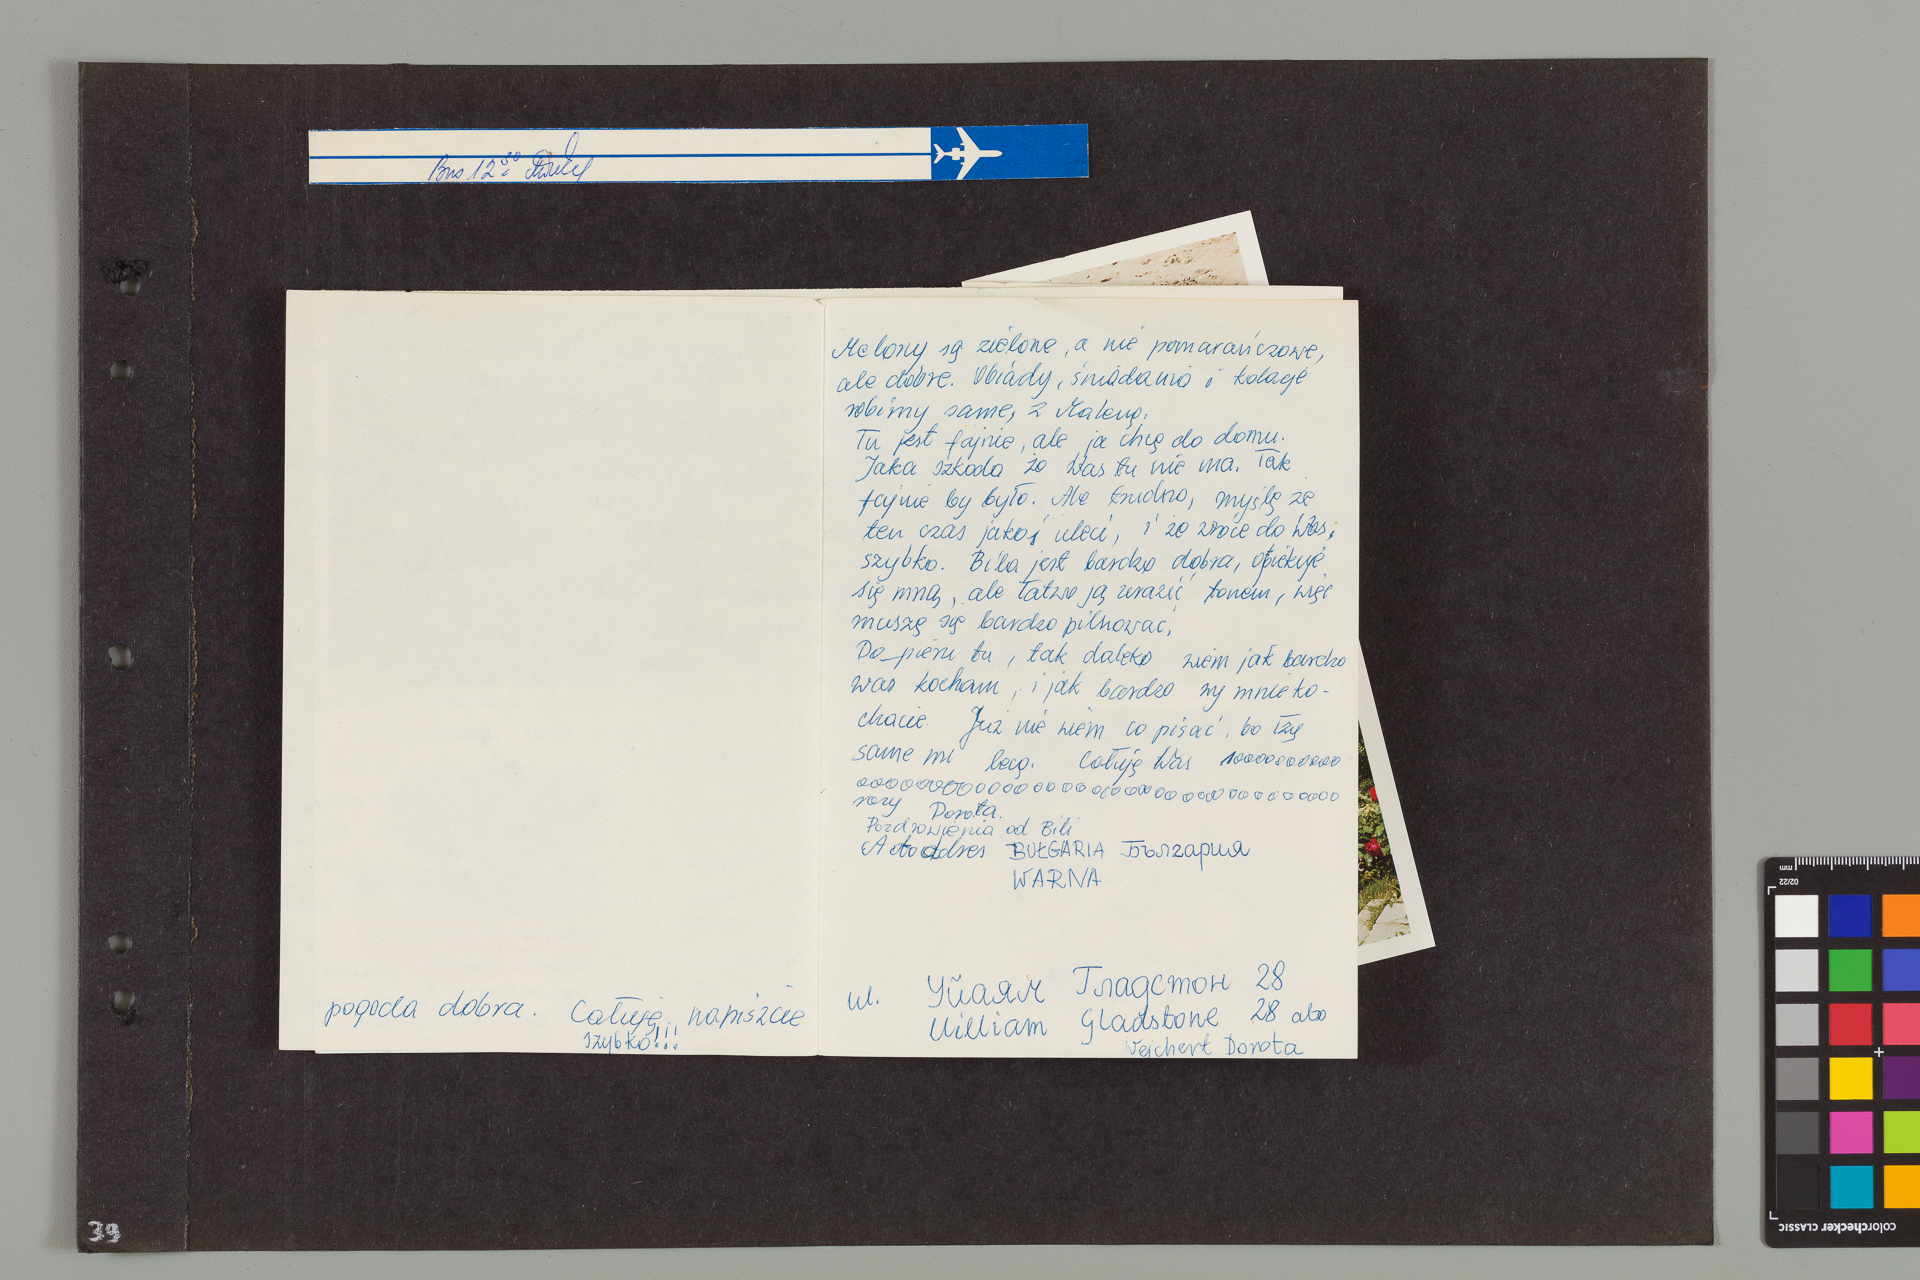 Bus 12 30
Melony są zielone, a nie pomarańczowe,
ale dobre. Obiady, śniadania i kolacje
robimy same, z Maleną.
Tu jest fajnie, ale ja chcę do domu.
Jaka szkoda że Was tu nie ma. Tak
fajnie by było. Ale trudno, myślę że
ten czas jakoś uleci, i że wrócę do Was,
szybko. Bila jest bardzo dobra, opiekuje
się mną, ale łatwo ją urazić tonem, więc
muszę się bardzo pilnować,
Do_piero tu, tak daleko wiem jak bardzo
was kocham, i jak bardzo wy mnie ko-
chacie. Już nie wiem co pisać, bo łzy
same mi lecą. Całuję Was 10000000000
0000000000000000000000000000000000
razy Dorota.
Pozdrowienia od Bili
A to adres BUŁGARIA България
WARNA
ul. Уйлям Гладстон 28
William Gladstone 28 abo
Wejchert Dorota
pogoda dobra. Całuję, napiszcie
szybko!!!
39
mm
02/22
colorchecker CLASSIC